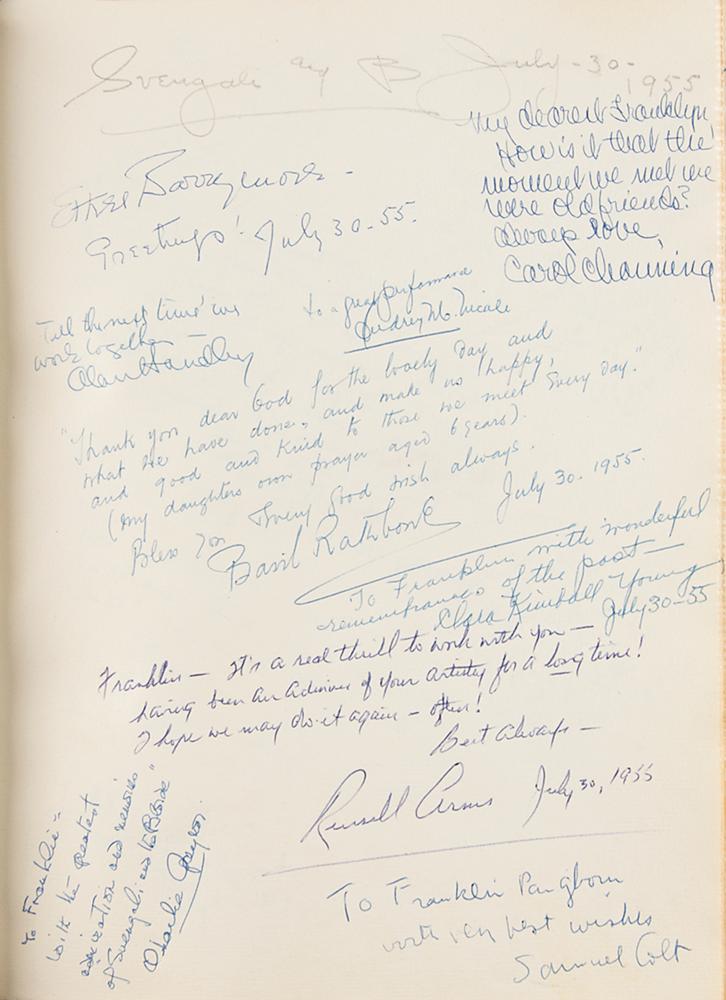 Svengali and B July-30-
1955
My dearest Franklyn
How is it that the
moment we met we
were old friends?
Always love,
Carol Channing
Ethel Barrymore -
Greetings! July 30-55.
Till the next time we
work together
Alan Handley
to a great performance
Audrey M.
"Thank you dear God for the lovely day and
what we have done, and make us happy,
and good and kind to those we meet Every day."
(My daughters own prayer aged 6 years).
Bless you Every Good wish always.
Basil Rathbone July 30. 1955.
To Franklin with wonderful
remembrances of the past-
Clara Kimball Young
July 30-55
Franklin - It's a real thrill to work with you -
having been an admirer of your artistry for a long time!
I hope we may do it again - often!
Best Always -
Russell Arms July 30, 1955
To Franklin -
with the greatest
admiration and memories
of Svengali and the Bride"
Charlie
To Franklin Pangborn
with very best wishes
Samuel Colt